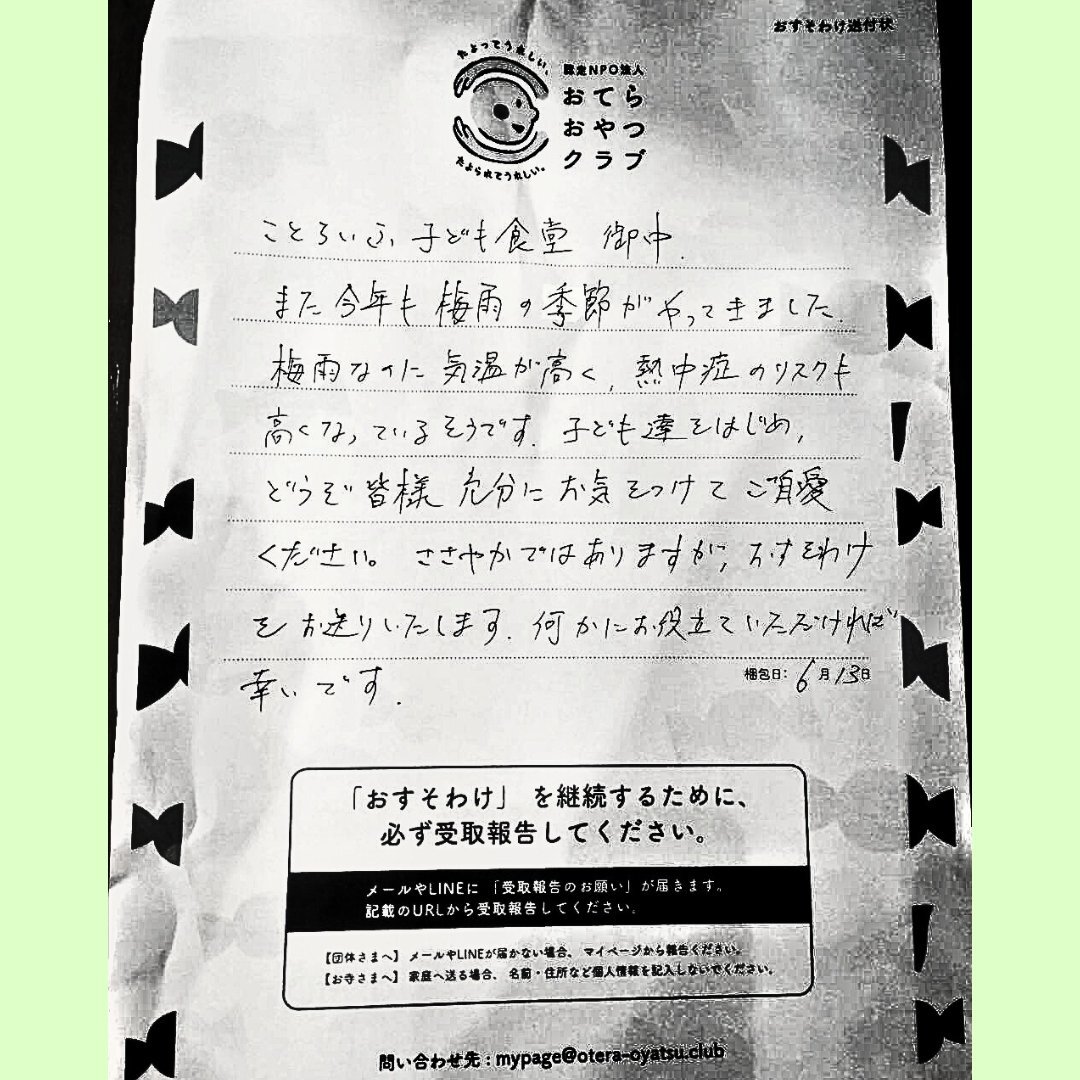 おすそわけ送付状
たよってうれしい、
たよられてうれしい。
認定NPO法人
おてら
おやつ
クラブ
ことらいふ子ども食堂 御中.
また今年も梅雨の季節がやってきました.
梅雨なのに気温が高く, 熱中症のリスクも
高くなっているそうです. 子ども達をはじめ,
どうぞ皆様 充分にお気をつけてご自愛
ください。 ささやかではありますが, おすそわけ
をお送りいたします. 何かにお役立ていただければ
幸いです.
梱包日: 6月13日
「おすそわけ」を継続するために、
必ず受取報告してください。
メールやLINEに「受取報告のお願い」が届きます。
記載のURLから受取報告してください。
【団体さまへ】メールやLINEが届かない場合、マイページから報告ください。
【お寺さまへ】家庭へ送る場合、名前・住所など個人情報を記入しないでください。
問い合わせ先：mypage@otera-oyatsu.club